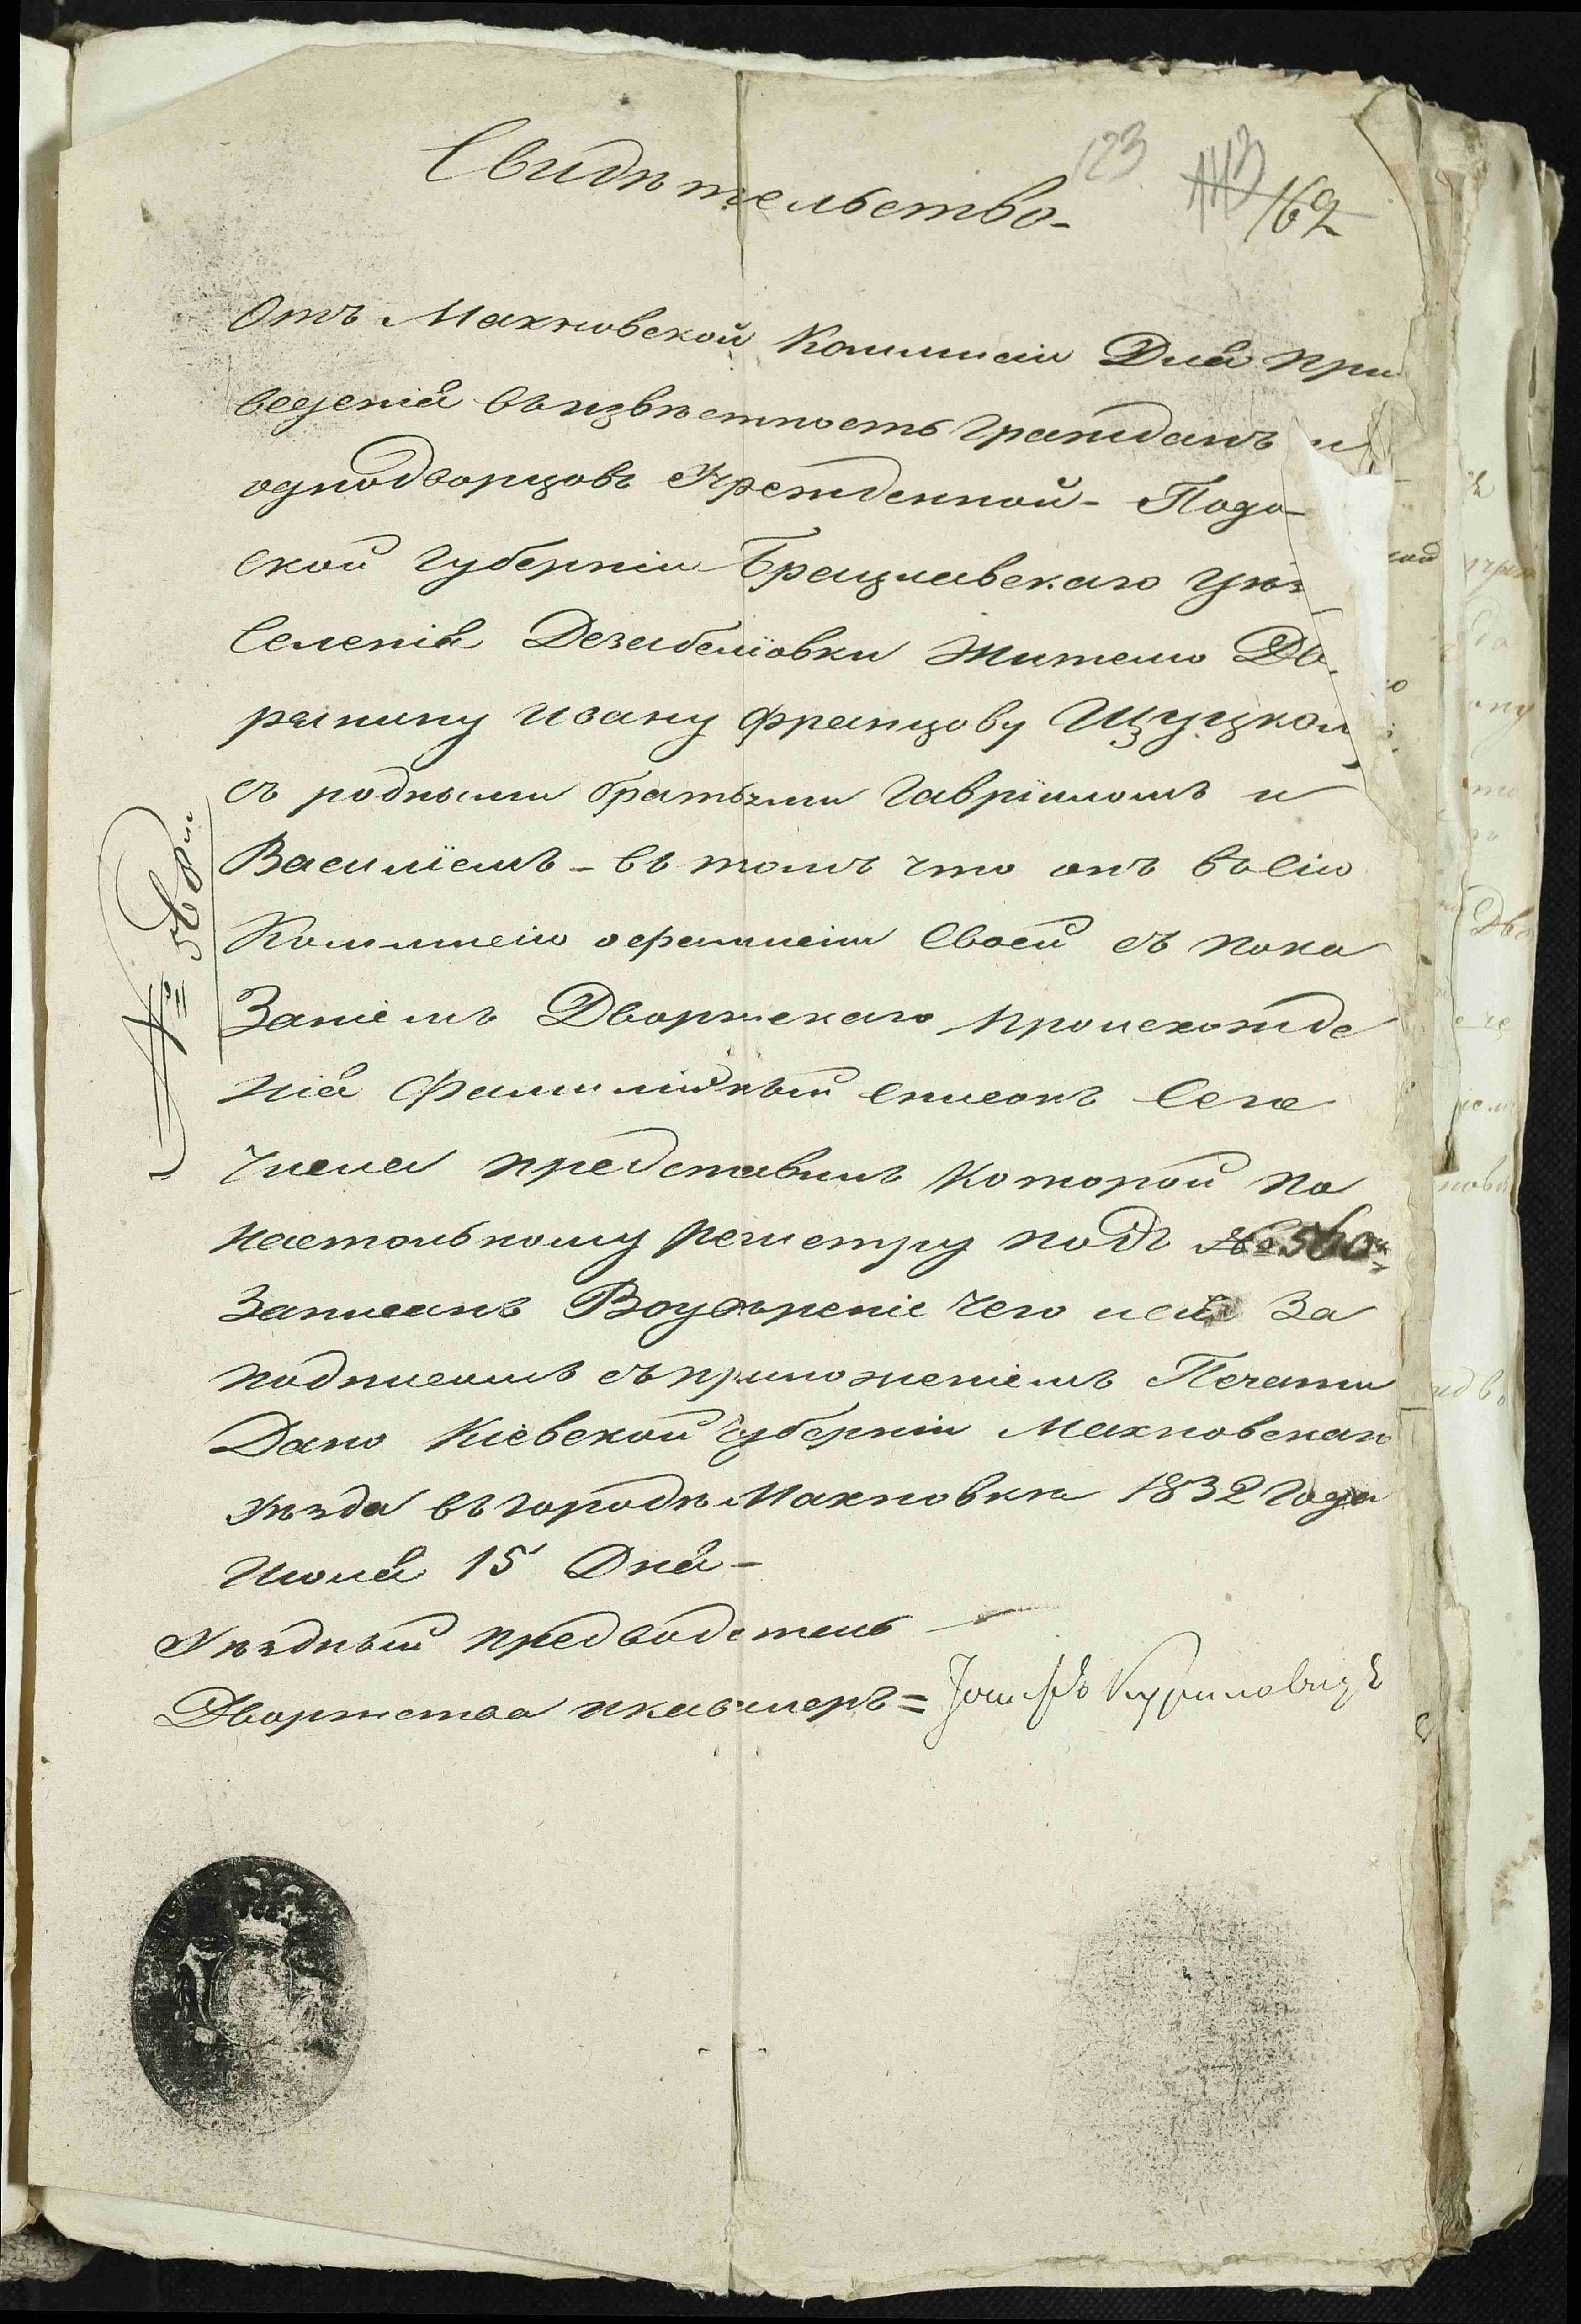 Свидѣтельство.
123. 162
Отъ Махновской Коммисіи Для при
веденія въ извѣстность гражданъ и
однодворцовъ Учрежденной - Подо-
ской губерніи Брацлавскаго уѣз
Селенія Дезабеліовки жителю Дво
рянину Ивану Францову Шуцком
съ родными братьями Гавріиломъ и
Василіемъ - въ томъ что онъ въ Сію
Коммисію о фамиліи Своей съ пока
Заніемъ Дворянскаго происхожде
нія Фамилійный списокъ Сего
числа представилъ которой по
настольному регистру подъ № 560
Записанъ Воувѣреніе чего За
подписомъ съ приложеніемъ Печати
Дано Кіевской губерніи Махновскаго
уѣзда въ городѣ Махновкѣ 1832 Года
Июля 15 Дня -
Уѣздный предводитель
Дворянства и кавалеръ = Іосифъ
№ 560